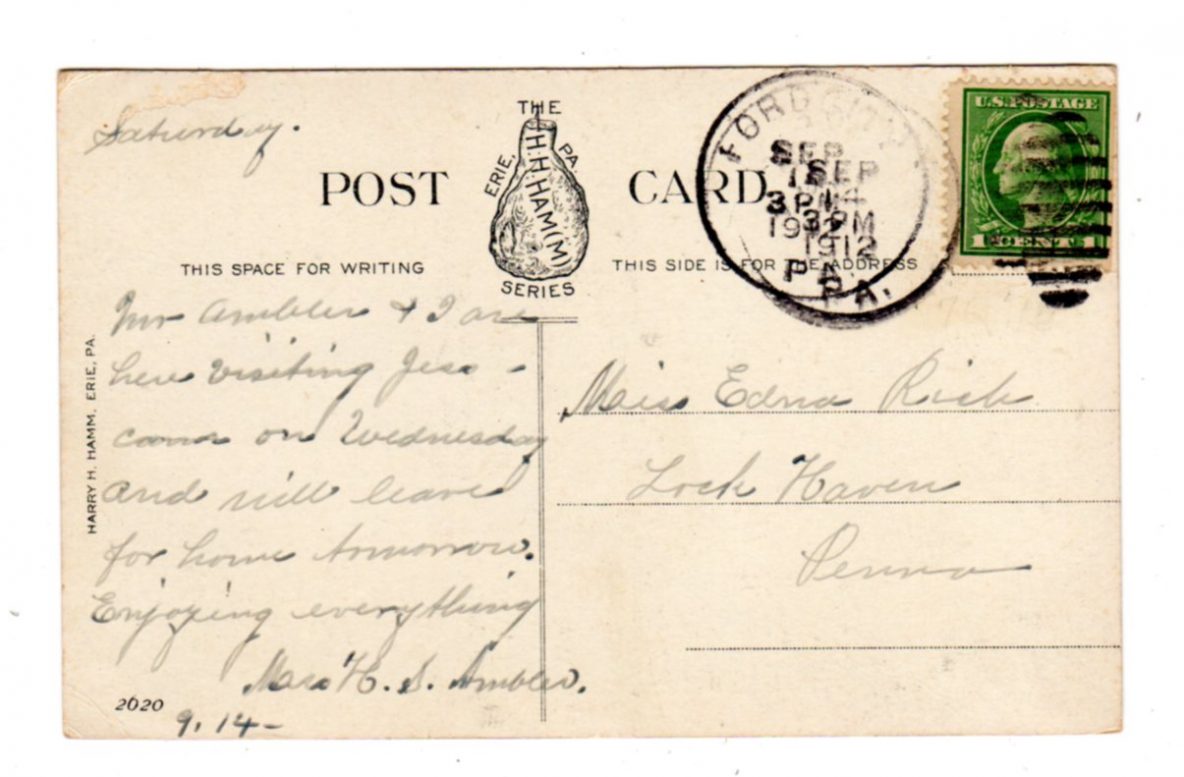 Saturday.
THE
H.H.HAM(M)
ERIE, PA.
SERIES
POST CARD
THIS SPACE FOR WRITING
THIS SIDE IS FOR THE ADDRESS
FORD CITY
SEP 14
3 PM
1912
PA.
SEP
14
3 PM
1912
PA.
U.S. POSTAGE
1 CENT 1
Mr Ambler & I are
here visiting Jess -
came on Wednesday
and will leave
for home tomorrow.
Enjoying everything
Mrs H. S. Ambler.
9.14-
2020
HARRY H. HAMM. ERIE, PA.
Miss Edna Rich
Lock Haven
Penna